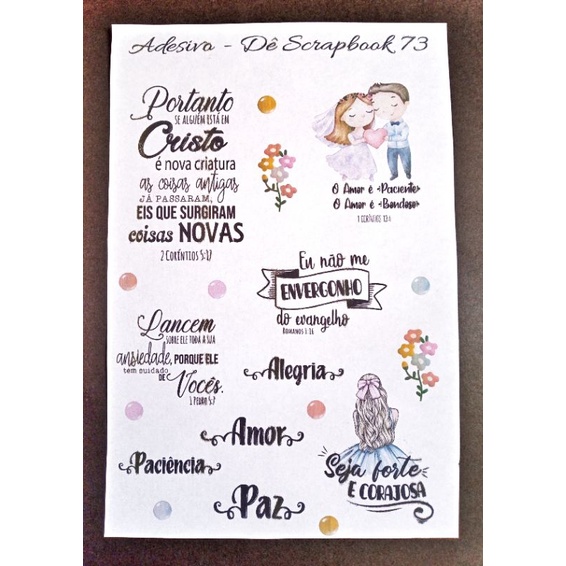 Adesivo - Dê Scrapbook 73
Portanto
SE ALGUÉM ESTÁ EM
Cristo
é nova criatura
as coisas antigas
JÁ PASSARAM,
EIS QUE SURGIRAM
coisas NOVAS
2 CORÍNTIOS 5:17
O Amor é «Paciente»
O Amor é «Bondoso»
1 CORÍNTIOS 13:4
Eu não me
ENVERGONHO
do evangelho
ROMANOS 1:16
Lancem
SOBRE ELE TODA A SUA
ansiedade, PORQUE ELE
tem cuidado
DE Vocês.
1 PEDRO 5:7
Alegria
Amor
Paciência
Paz
Seja forte
E CORAJOSA